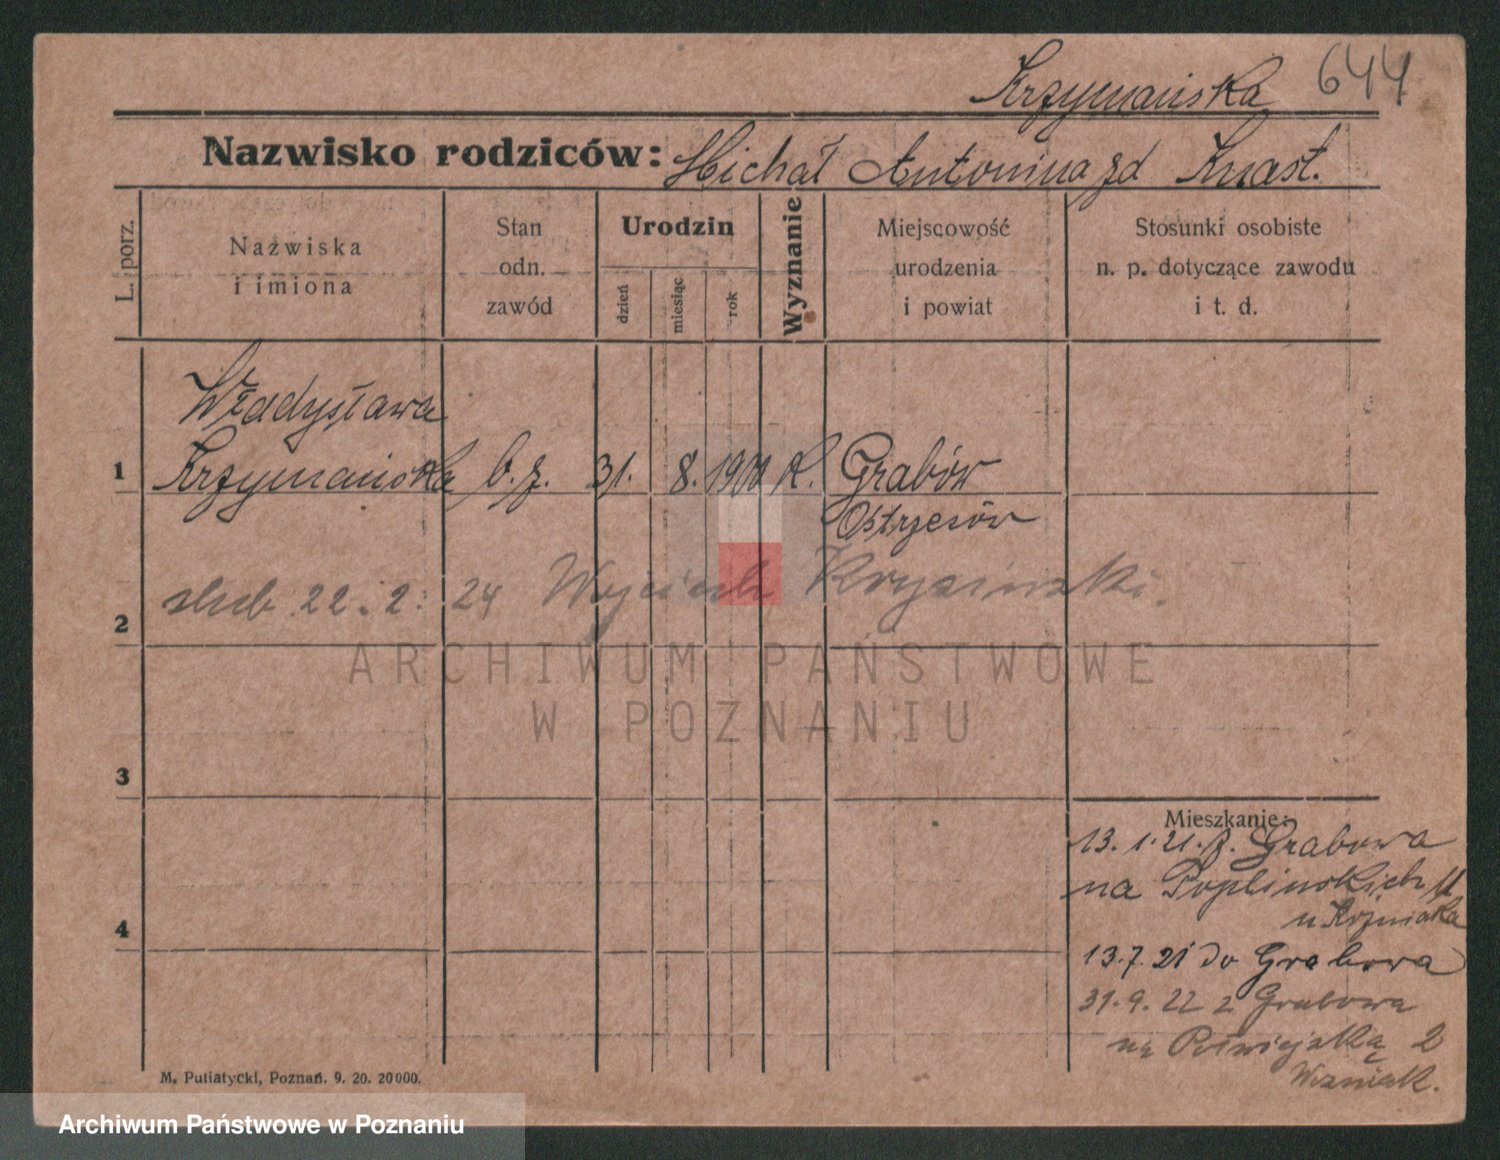 Krzymańska 644
Nazwisko rodziców: Michał Antonina zd Knast.
L. porz.
Nazwiska
i imiona
Stan
odn.
zawód
Urodzin
dzień
miesiąc
rok
Wyznanie
Miejscowość
urodzenia
i powiat
Stosunki osobiste
n. p. dotyczące zawodu
i t. d.
Władysława
1 Krzymańska b. z. 31. 8. K. Grabów
Ostrzesów
2 ślub 22. 2. 24 Wojciech
ARCHIWUM PAŃSTWOWE
W POZNANIU
3
Mieszkanie:
13. 1. 21. z. Grabowa
na Poplinskich 11
u
4
13.7. 21 do Grabowa
31. 9. 22 z Grabowa
na 2
M. Putiatycki, Poznań. 9. 20. 20000.
Archiwum Państwowe w Poznaniu